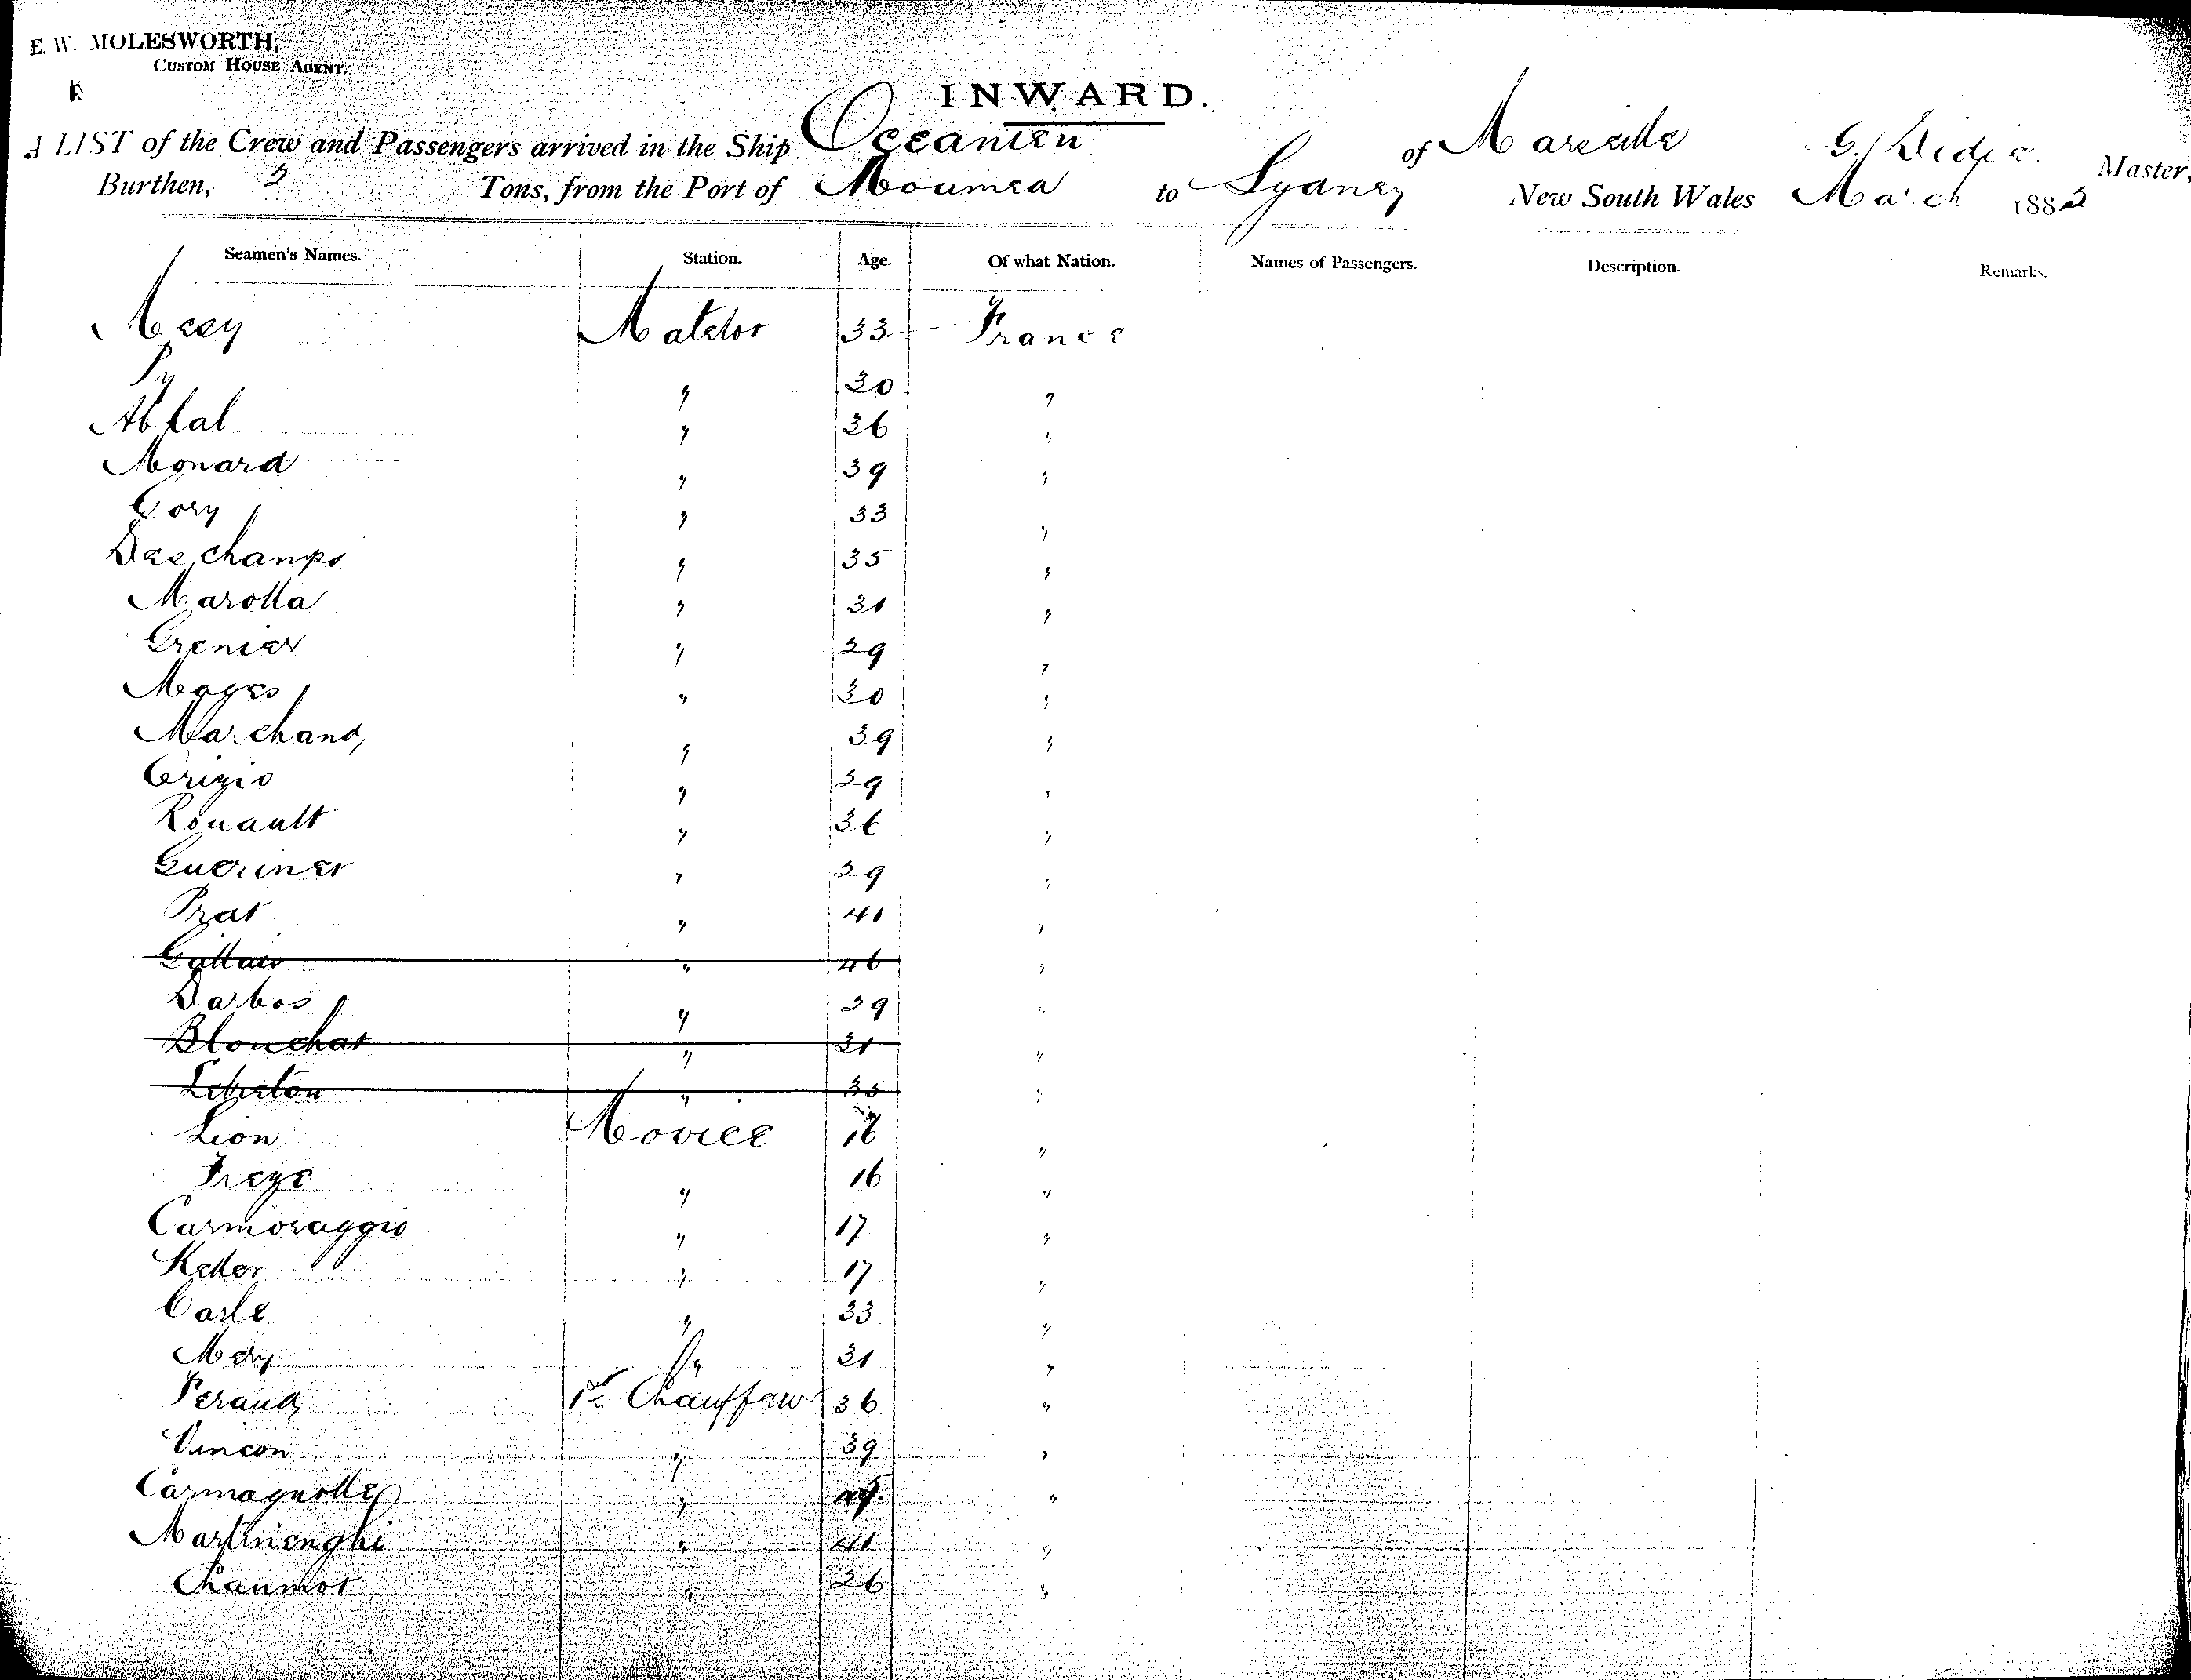 E. W. MOLESWORTH,
CUSTOM HOUSE AGENT.
INWARD.
A LIST of the Crew and Passengers arrived in the Ship Oceanien of Marseille G. Didier Master,
Burthen, Tons, from the Port of Noumea to Sydney New South Wales March 188
Seamen's Names. Station. Age. Of what Nation. Names of Passengers. Description. Remarks.
Matelot 33 France
Py " 30 "
" 36 "
Monard " 39 "
Gory " 33 "
Deschamps " 35 "
Marotta " 31 "
Grenier " 29 "
" 30 "
Marchand " 39 "
" 29 "
Rouault " 36 "
" 29 "
Prat " 41 "
" 46 "
Darbos " 29 "
Blouchat " 31 "
Lebreton " 35 "
Lion Novice 16 "
" 16 "
" 17 "
Keller " 17 "
Carle " 33 "
Mery " 31 "
Peraud 1er Chauffeur 36 "
Vincon " 39 "
Carmagnolle " "
Martinenghi " 41 "
Chaumot " 26 "